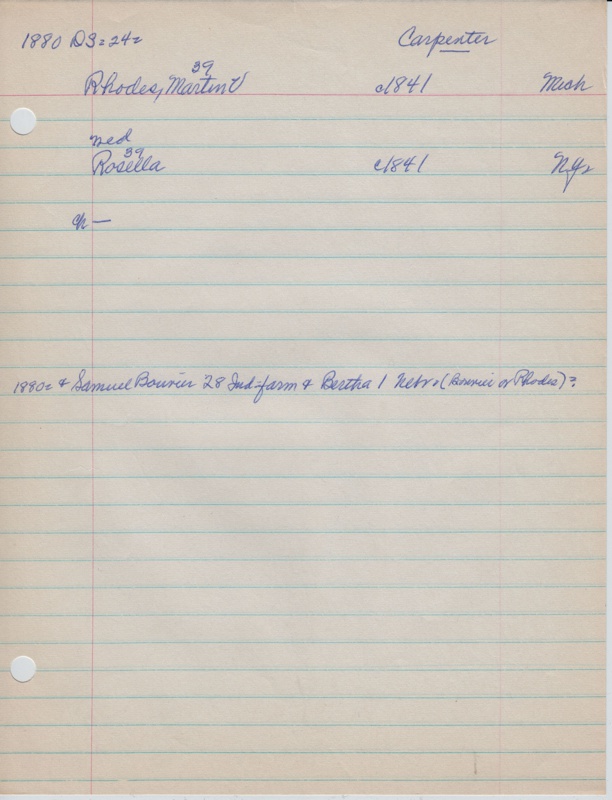 1880 DS=24= Carpenter
39
Rhodes, Martin V c1841 Mich
med
39
Rosella c1841 N.Y.
ch —
1880= & Samuel Bouvier 28 Ind=farm & Bertha 1 Nebr. (Bouvier or Rhodes)?